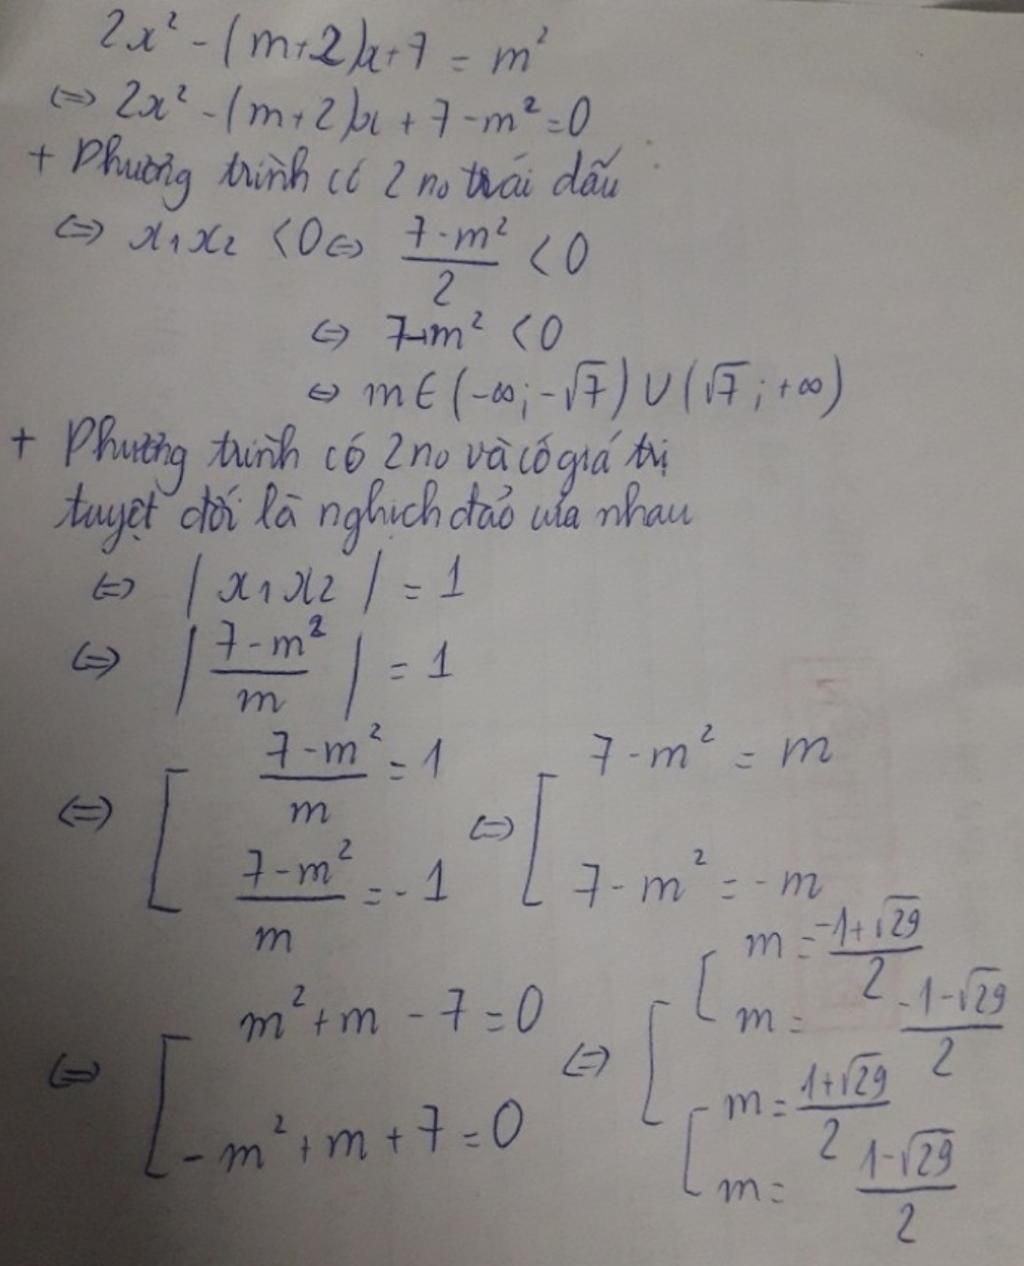 2x² - (m+2)x + 7 = m²
⇔ 2x² - (m+2)x + 7 - m² = 0
+ Phương trình có 2 no trái dấu
⇔ x₁x₂ < 0 ⇔ (7-m²)/2 < 0
⇔ 7-m² < 0
⇔ m ∈ (-∞; -√7) ∪ (√7; +∞)
+ Phương trình có 2 no và có giá trị
tuyệt đối là nghịch đảo của nhau
⇔ |x₁x₂| = 1
⇔ |(7-m²)/m| = 1
⇔ [ (7-m²)/m = 1 ⇔ [ 7-m² = m
(7-m²)/m = -1 7-m² = -m
⇔ [ m²+m-7=0 ⇔ [ [ m = (-1+√29)/2
m = (-1-√29)/2
-m²+m+7=0 [ m = (1+√29)/2
m = (1-√29)/2